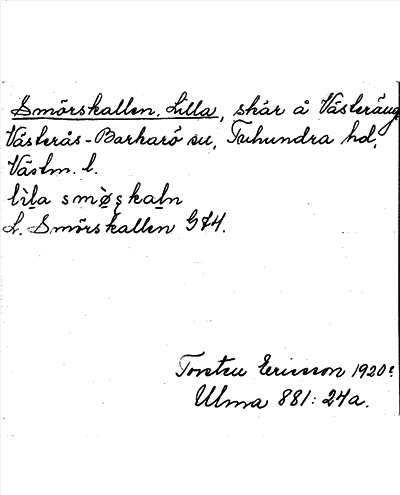 Smörskallen, Lilla, skär å Västeräng
Västerås-Barkarö sn, Tuhundra hd,
Västm. l.
lìla smø̀ʂkaln
L. Smörskallen G 74.
Torsten Ericsson 1920
Ulma 881: 24a.